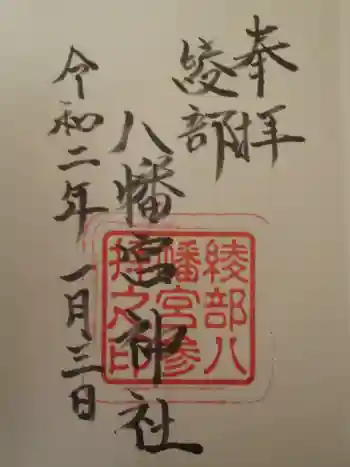 奉拝
綾部
八幡宮神社
令和二年 一月三日
綾部八
幡宮参
拝之印